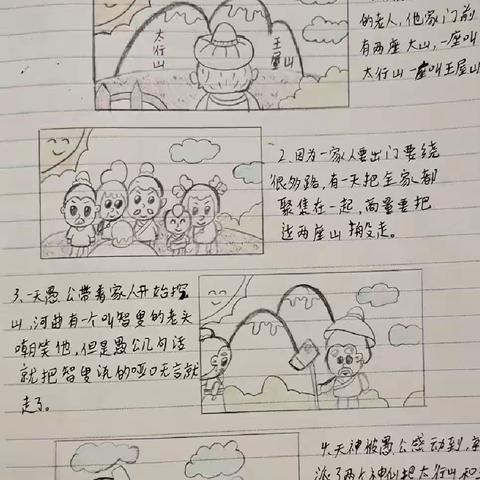 的老人,他家门前
有两座大山,一座叫
太行山一座叫王屋山
太行山
王屋山
2、因为一家人要出门要绕
很多路,有一天把全家都
聚集在一起,商量要把
这两座山搬走。
3、一天愚公带着家人开始挖
山,河曲有一个叫智叟的老头
嘲笑他,但是愚公几句话
就把智叟说的哑口无言就
走了。
4、天神被愚公感动到,
派了两个神仙把太行山和